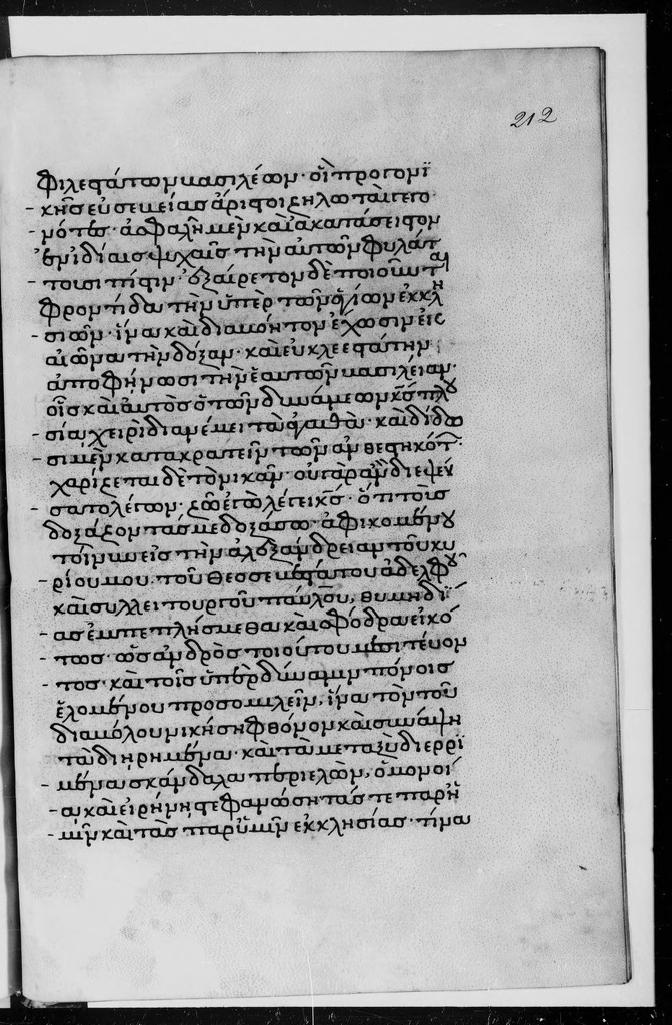 212
φιλεστάτων βασιλέων· οἳ προγονϊ
κῆς εὐσεβείας ἄριστοι ζηλωταὶ γεγο
νότες· ἀσφαλῆ μὲν καὶ ἀκατάσειστον
ἐν ἰδίαις ψυχαῖς τὴν αὐτῶν φυλάτ
τουσι πίστιν· ἐξαίρετον δὲ ποιοῦνται
φροντίδα τὴν ὑπὲρ τῶν ἁγίων ἐκκλη
σιῶν· ἵνα καὶ διαβόητον ἔχωσιν εἰς
αἰῶνα τὴν δόξαν· καὶ εὐκλεεστάτην
ἀποφήνωσι τὴν ἑαυτῶν βασιλείαν·
οἷς καὶ αὐτὸς ὁ τῶν δυνάμεων κ̅ς̅ πλου
σίᾳ χειρὶ διανέμει τὰ ἀγαθὰ· καὶ δίδω
σι μὲν κατακρατεῖν τῶν ἀνθεστηκότ̅·
χαρίζεται δὲ τὸ νικᾶν· οὐ γὰρ ἂν διεψεύ
σατο λέγων· ζῶ ἐγὼ λέγει κ̅ς̅· ὅτι τοὺς
δοξάζοντάς με δοξάσω· ἀφικομένου
τοίνυν εἰς τὴν ἀλεξάνδρειαν τοῦ κυ
ρίου μου τοῦ θεοσεβεστάτου ἀδελφοῦ
καὶ συλλειτουργοῦ παύλου, θυμηδί
ας ἐμπεπλήσμεθα καὶ σφόδρα εἰκό
τως· ὡς ἀνδρὸς τοιούτου μεσιτεύον
τος· καὶ τοῖς ὑπὲρ δύναμιν πόνοις
ἑλομένου προσομιλεῖν, ἵνα τὸν τοῦ
διαβόλου νικήσῃ φθόνον καὶ συνάψῃ
τὰ διῃρημένα· καὶ τὰ μεταξὺ διερρϊ
μένα σκάνδαλα περιελὼν, ὁμονοί
ᾳ καὶ εἰρήνῃ στεφανώσῃ τάς τε παρ' ἡ
μῖν καὶ τὰς παρ' ὑμῖν ἐκκλησίας· τίνα